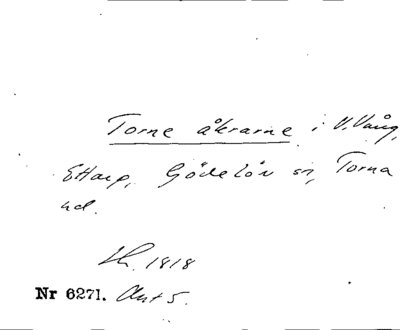 Torne åkrarne i V. Vång,
Ettarp, Gödelöv sn, Torna
hd.
1818
Nr 6271. Akt 5.